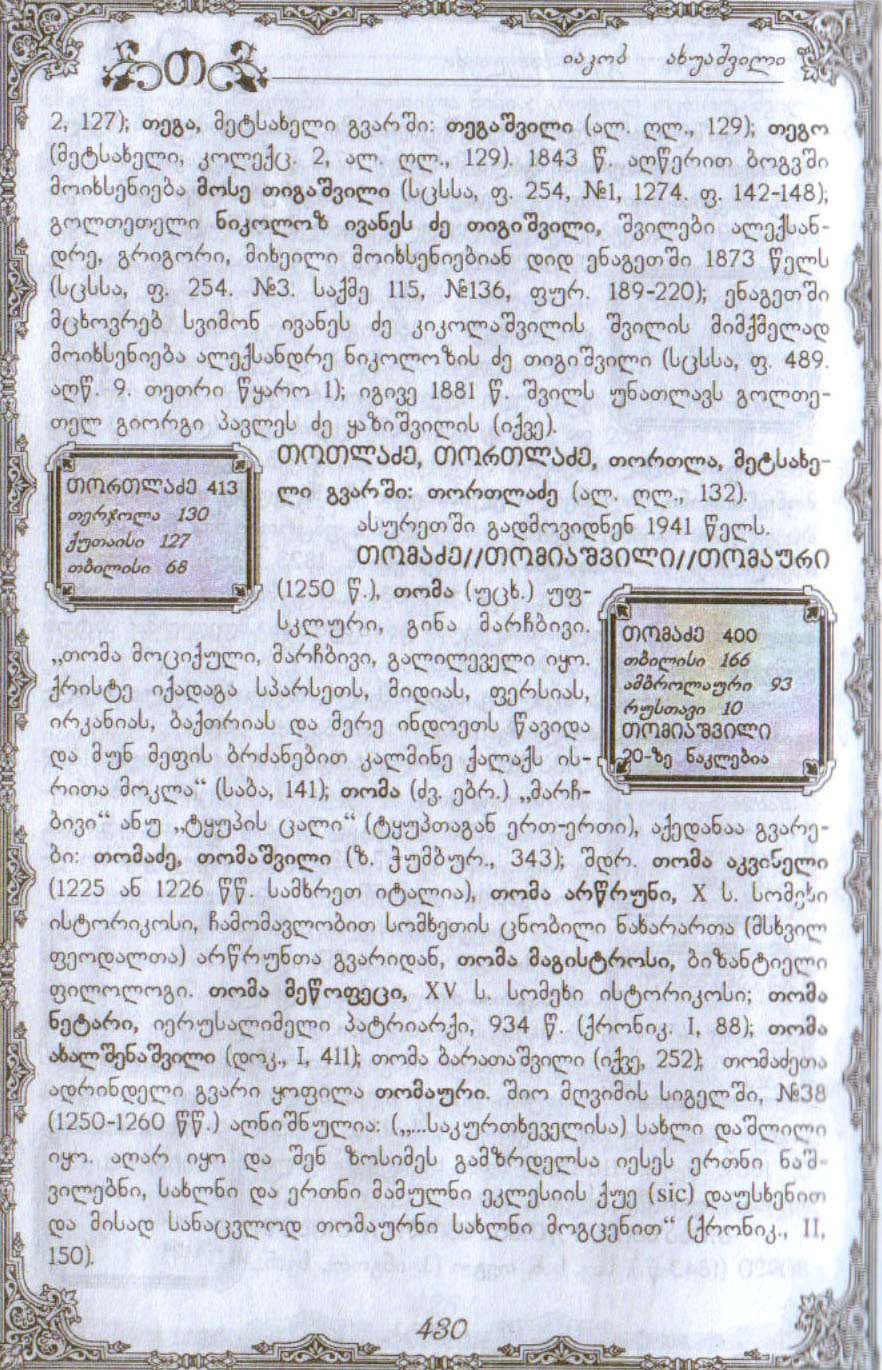 თ
იაკობ ახუაშვილი
2, 127); თეგა, მეტსახელი გვარში: თეგაშვილი (ალ. ღლ., 129); თეგო
(მეტსახელი, კოლექც. 2, ალ. ღლ., 129). 1843 წ. აღწერით ბოგვში
მოიხსენიება მოსე თიგაშვილი (სცსსა, ფ. 254, №1, 1274. ფ. 142-148);
გოლთეთელი ნიკოლოზ ივანეს ძე თიგიშვილი, შვილები ალექსან-
დრე, გრიგორი, მიხეილი მოიხსენიებიან დიდ ენაგეთში 1873 წელს
(სცსსა, ფ. 254. №3. საქმე 115, №136, ფურ. 189-220); ენაგეთში
მცხოვრებ სვიმონ ივანეს ძე კიკოლაშვილის შვილის მიმქმელად
მოიხსენიება ალექსანდრე ნიკოლოზის ძე თიგიშვილი (სცსსა, ფ. 489.
აღწ. 9. თეთრი წყარო 1); იგივე 1881 წ. შვილს უნათლავს გოლთე-
თელ გიორგი პავლეს ძე ყაზიშვილის (იქვე).
თოთლაძე, თორთლაძე, თორთლა, მეტსახე-
ლი გვარში: თორთლაძე (ალ. ღლ., 132).
ასურეთში გადმოვიდნენ 1941 წელს.
თორთლაძე 413
თერჯოლა 130
ქუთაისი 127
თბილისი 68
თომაძე//თომიაშვილი//თომაური
(1250 წ.), თომა (უცხ.) უფ-
სკლური, გინა მარჩბივი.
„თომა მოციქული, მარჩბივი, გალილეველი იყო.
ქრისტე იქადაგა სპარსეთს, მიდიას, ფერსიას,
ირკანიას, ბაქთრიას და მერე ინდოეთს წავიდა
და მუნ მეფის ბრძანებით კალმინე ქალაქს ის-
რითა მოკლა“ (საბა, 141); თომა (ძვ. ებრ.) „მარჩ-
თომაძე 400
თბილისი 166
ამბროლაური 93
რუსთავი 10
თომიაშვილი
20-ზე ნაკლებია
ბივი“ ანუ „ტყუპის ცალი“ (ტყუპთაგან ერთ-ერთი), აქედანაა გვარე-
ბი: თომაძე, თომაშვილი (ზ. ჭუმბურ., 343); შდრ. თომა აკვინელი
(1225 ან 1226 წწ. სამხრეთ იტალია), თომა არწრუნი, X ს. სომეხი
ისტორიკოსი, ჩამომავლობით სომხეთის ცნობილი ნახარართა (მსხვილ
ფეოდალთა) არწრუნთა გვარიდან, თომა მაგისტროსი, ბიზანტიელი
ფილოლოგი. თომა მეწოფეცი, XV ს. სომეხი ისტორიკოსი; თომა
ნეტარი, იერუსალიმელი პატრიარქი, 934 წ. (ქრონიკ. I, 88); თომა
ახალშენაშვილი (დოკ., I, 411); თომა ბარათაშვილი (იქვე, 252); თომაძეთა
ადრინდელი გვარი ყოფილა თომაური. შიო მღვიმის სიგელში, №38
(1250-1260 წწ.) აღნიშნულია: („...საკურთხეველისა) სახლი დაშლილი
იყო. აღარ იყო და შენ ზოსიმეს გამზრდელსა იესეს ერთნი ნაშ-
ვილებნი, სახლნი და ერთნი მამულნი ეკლესიის ქუე (sic) დაუსხენით
და მისად სანაცვლოდ თომაურნი სახლნი მოგცენით“ (ქრონიკ., II,
150).
430